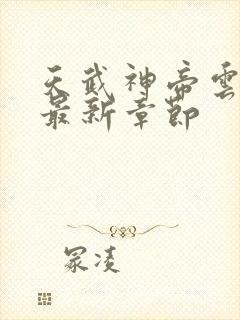 天武神帝雲
最新章節
冢凌